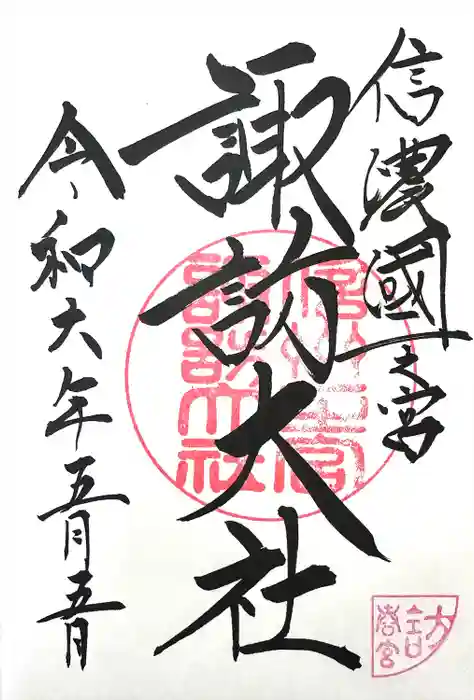 信濃國一之宮
諏訪大社
令和六年五月五日
諏訪大社
春宮